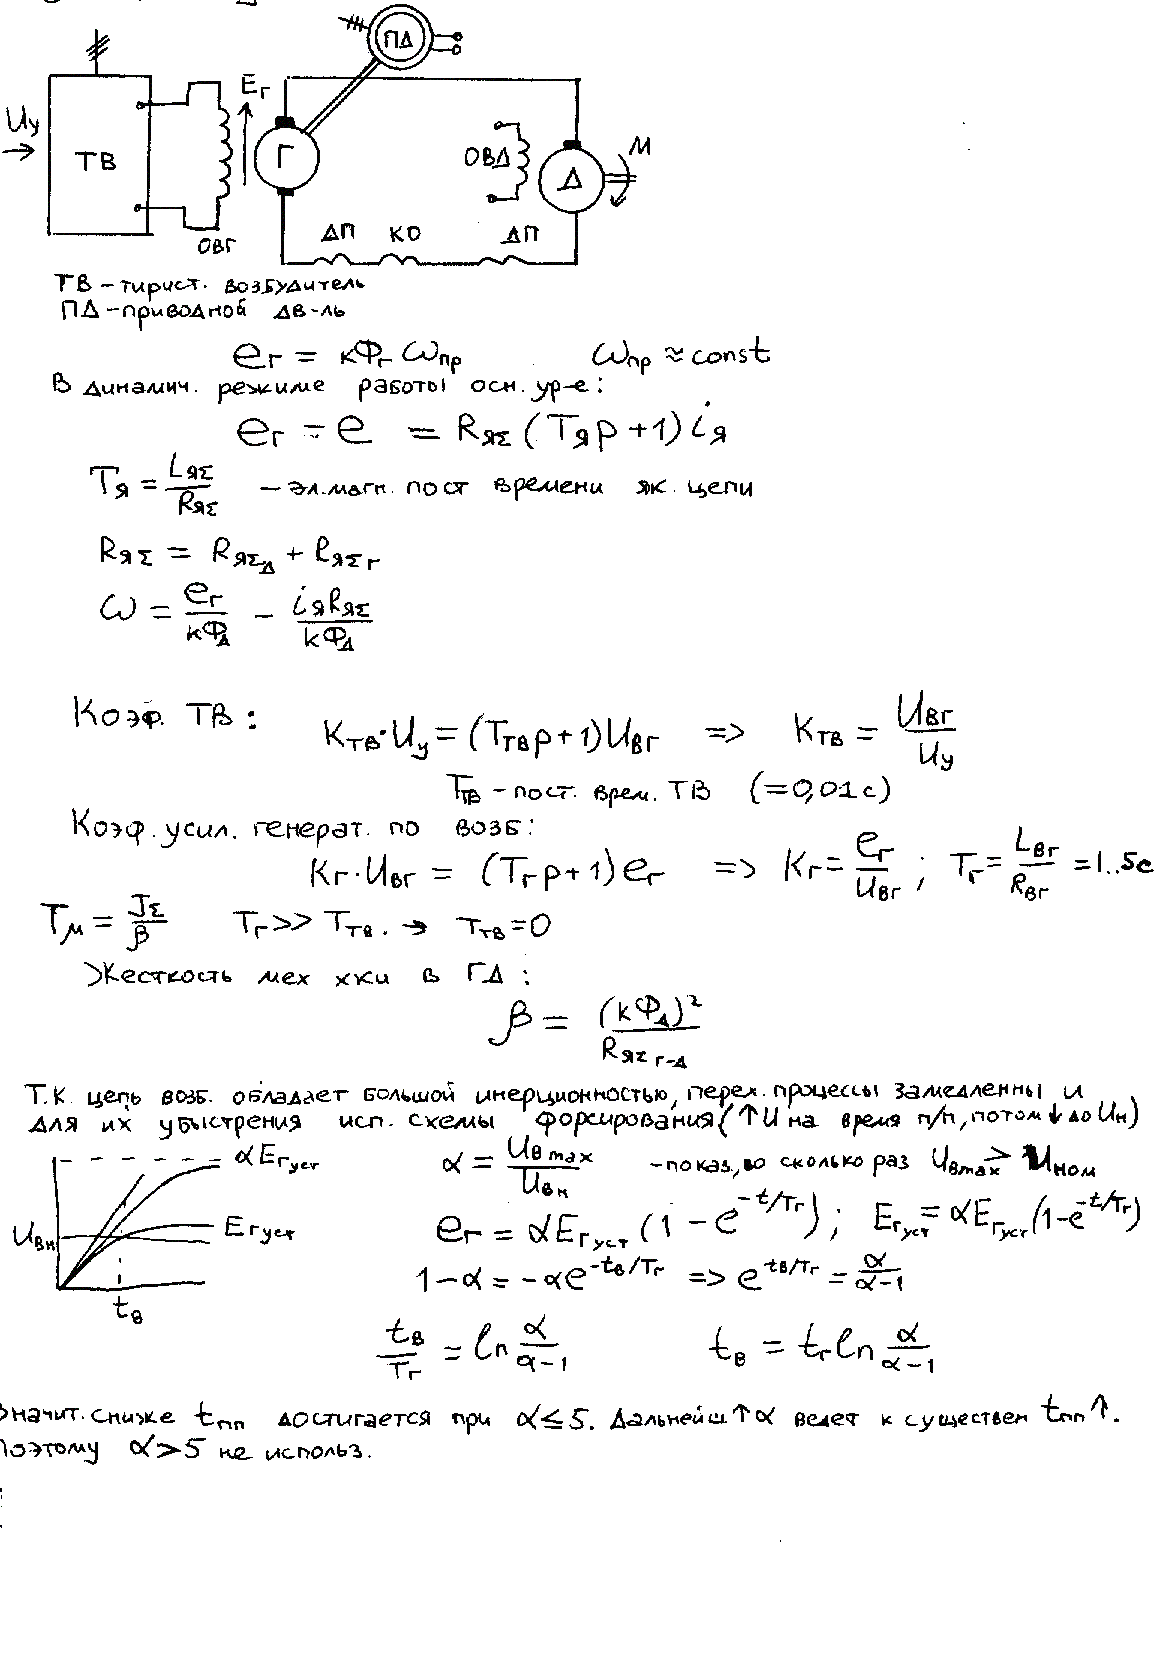 ПД
Uу
ТВ
Eг
Г
ОВГ
ОВД
Д
М
ДП КО ДП
ТВ – тирист. возбудитель
ПД – приводной дв-ль
eг = кФг ωпр ωпр ≈ const
В динамич. режиме работы осн. ур-е:
eг – e = RяΣ (Tяp + 1) iя
Tя = LяΣ / RяΣ – эл.магн. пост времени як. цепи
RяΣ = RяΣд + RяΣг
ω = eг / кФд – iяRяΣ / кФд
Коэф. ТВ: Kтв·Uу = (Tтвp + 1)Uвг => Kтв = Uвг / Uу
Tтв – пост. врем. ТВ (= 0,01с)
Коэф. усил. генерат. по возб:
Kг·Uвг = (Tгp + 1)eг => Kг = eг / Uвг ; Tг = Lвг / Rвг = 1..5с
Tм = JΣ / β Tг >> Tтв. → Tтв = 0
Жесткость мех хки в ГД:
β = (кФд)² / RяΣг-д
Т.к. цепь возб. обладает большой инерционностью, перех. процессы замедленны и
для их убыстрения исп. схемы форсирования (↑U на время п/п, потом ↓ до Uн)
αEгуст
α = Uв max / Uвн – показ., во сколько раз Uвmax > Uном
Uвн
Eгуст
eг = αEгуст (1 – e^-t/Tг); Eгуст = αEгуст (1-e^-t/Tг)
1 – α = –αe^-tв/Tг => e^tв/Tг = α / α-1
tв
tв / Tг = ln α / α-1 tв = tг ln α / α-1
Значит. сниже tпп достигается при α ≤ 5. Дальнейш ↑α ведет к существен tпп ↑.
Поэтому α > 5 не использ.